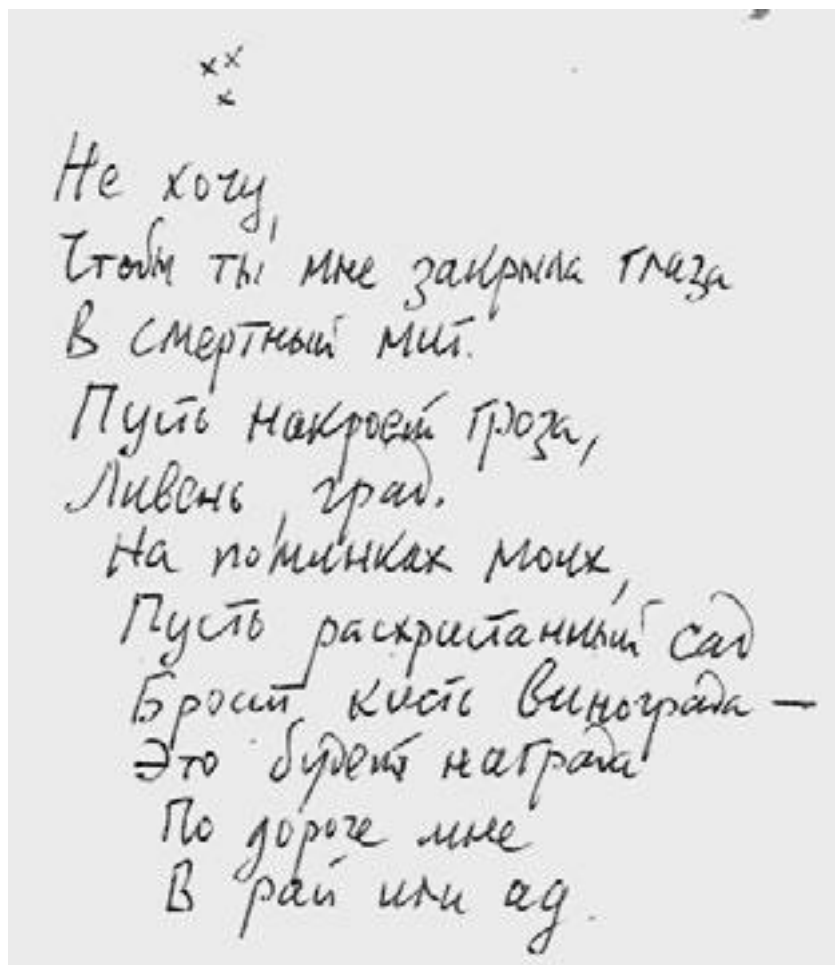 х х
х
Не хочу,
Чтобы ты мне закрыла глаза
В смертный миг.
Пусть накроет гроза,
Ливень, град.
На поминках моих,
Пусть расхристанный сад
Бросит кисть винограда —
Это будет награда
По дороге мне
В рай или ад.